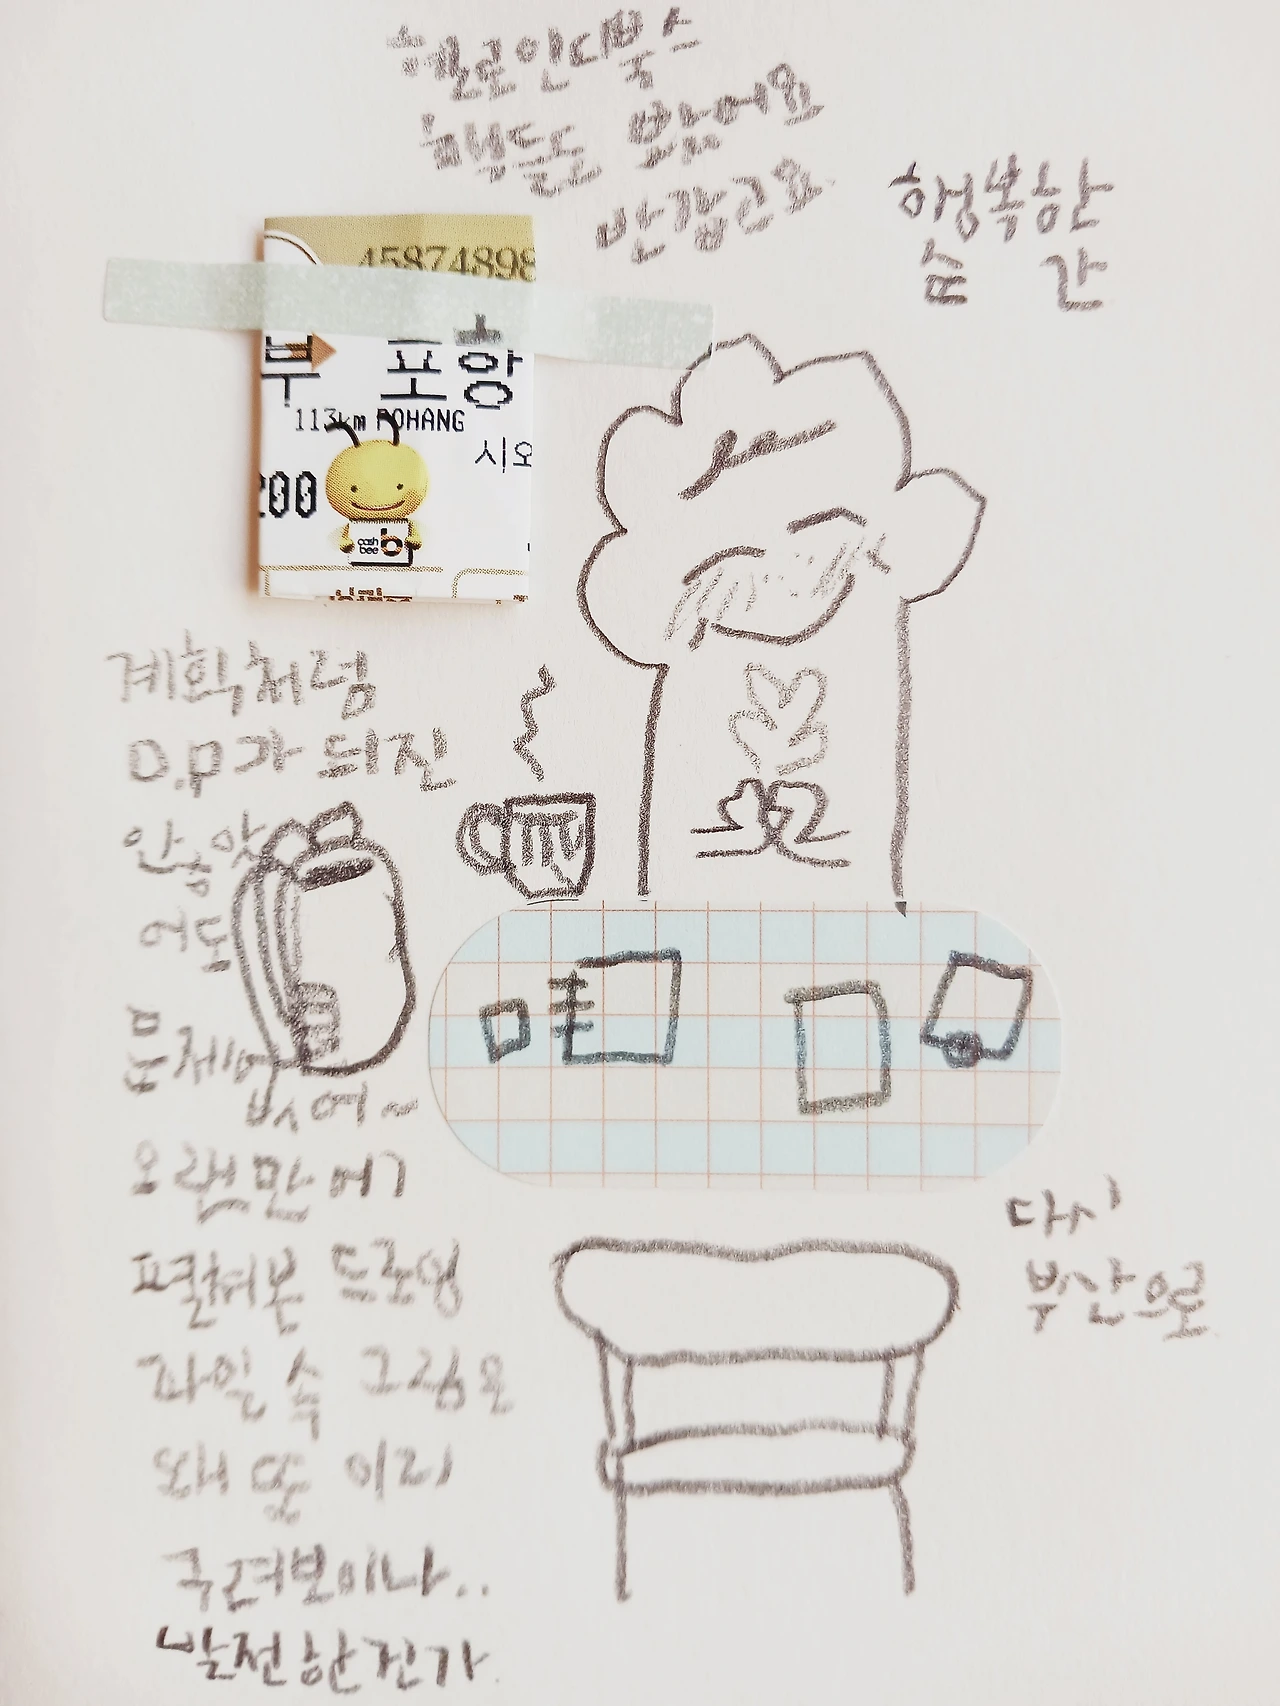 헬로인디북스
책들도 봤어요
반갑고요.
행복한
순간
45874898
부 포항
113km POHANG
시오
200
cash
bee b
계획처럼
D.P가 되진
안 았
어도
문제
없어~
오랜만에
펼쳐본 드로잉
파일 속 그림은
왜 또 이리
구려보이나..
발전한건가
다시
부산으로